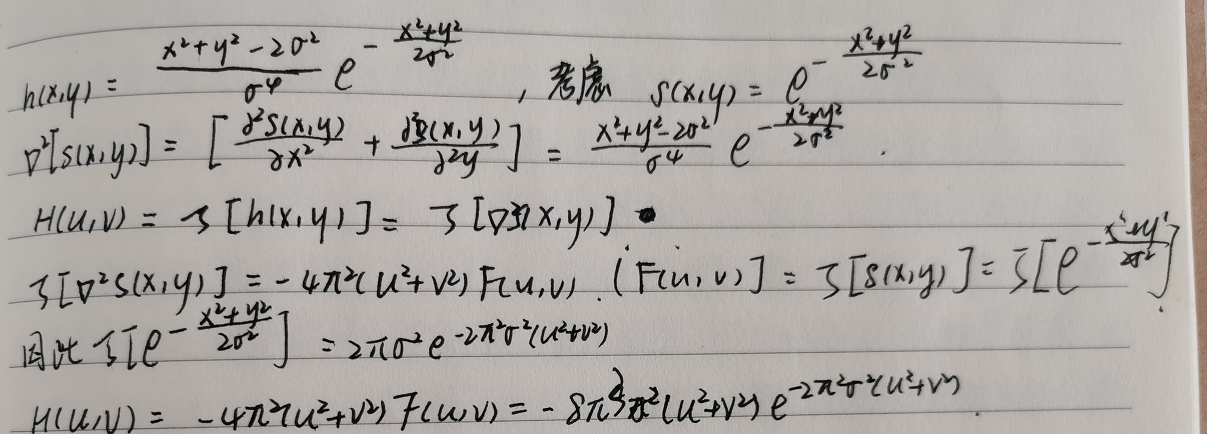 h(x,y) = \frac{x²+y²-2σ²}{σ⁴} e^{-\frac{x²+y²}{2σ²}}, 考虑 s(x,y) = e^{-\frac{x²+y²}{2σ²}}
∇²[s(x,y)] = [\frac{∂²s(x,y)}{∂x²} + \frac{∂²s(x,y)}{∂²y}] = \frac{x²+y²-2σ²}{σ⁴} e^{-\frac{x²+y²}{2σ²}}.
H(u,v) = ℑ[h(x,y)] = ℑ[∇²s(x,y)]
ℑ[∇²s(x,y)] = -4π²(u²+v²)F(u,v). (F(u,v)] = ℑ[s(x,y)] = ℑ[e^{-\frac{x²+y²}{2σ²}}].
因此 ℑ[e^{-\frac{x²+y²}{2σ²}}] = 2πσ²e^{-2π²σ²(u²+v²)}
H(u,v) = -4π²(u²+v²)F(u,v) = -8π³σ²(u²+v²)e^{-2π²σ²(u²+v²)}.